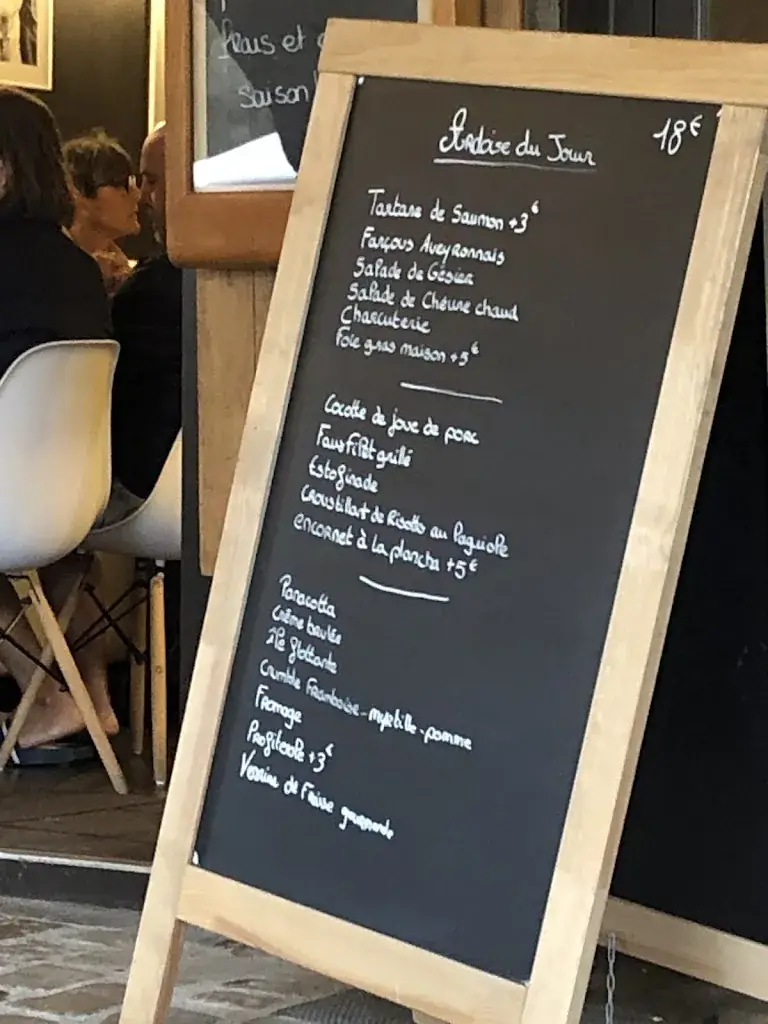 frais et
saison
Ardoise du Jour
18€
Tartare de Saumon +3€
Farçous Aveyronnais
Salade de Gésier
Salade de Chèvre chaud
Charcuterie
Foie gras maison +5€
Cocotte de joue de porc
Faux Filet grillé
Estofinade
Croustillant de Risotto au Laguiole
encornet à la plancha +5€
Panacotta
Crème brulée
île flottante
Crumble Framboise-myrtille-pomme
Fromage
Profiterole +3€
Verrine de Fraise gourmande